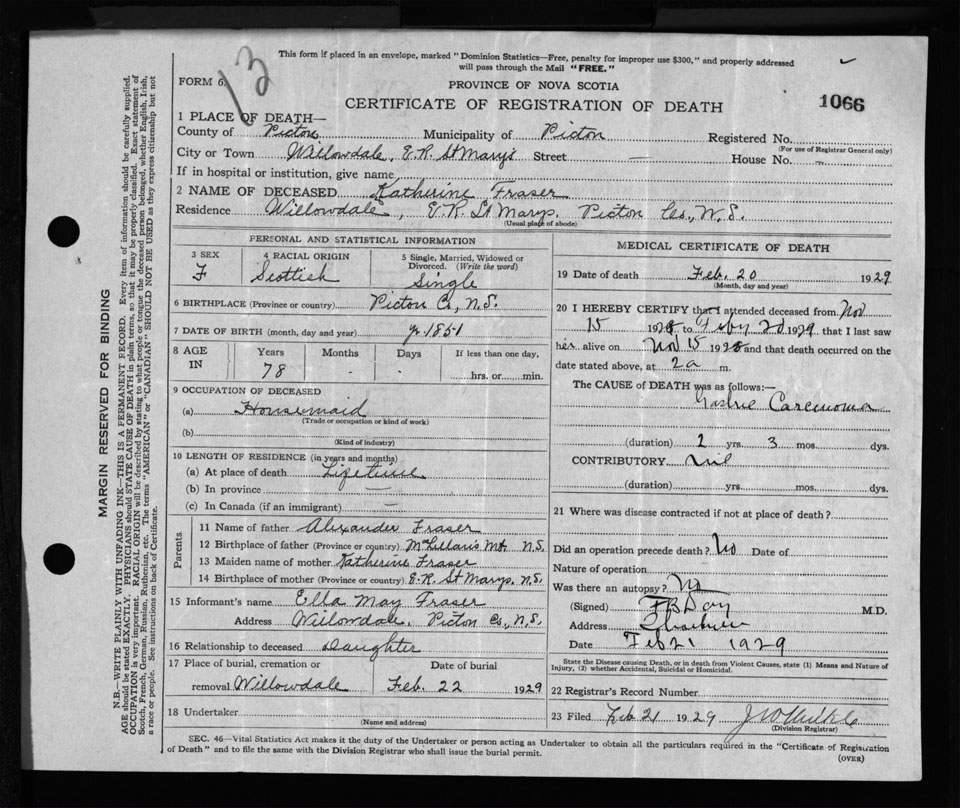 This form if placed in an envelope, marked "Dominion Statistics—Free, penalty for improper use $300," and properly addressed
will pass through the Mail "FREE."
FORM 6
13
PROVINCE OF NOVA SCOTIA
CERTIFICATE OF REGISTRATION OF DEATH
1066
1 PLACE OF DEATH—
County of Pictou Municipality of Pictou Registered No.
(For use of Registrar General only)
City or Town Willowdale, E.R. St Mary's Street — House No. —
If in hospital or institution, give name
2 NAME OF DECEASED Katherine Fraser
Residence Willowdale, E.R. St Marys. Pictou Co., N.S.
(Usual place of abode)
PERSONAL AND STATISTICAL INFORMATION
3 SEX
F
4 RACIAL ORIGIN
Scottish
5 Single, Married, Widowed or
Divorced. (Write the word)
Single
6 BIRTHPLACE (Province or country) Pictou Co, N.S.
7 DATE OF BIRTH (month, day and year) yr. 1851
8 AGE
IN
Years
78
Months
-
Days
-
If less than one day,
hrs. or min.
9 OCCUPATION OF DECEASED
(a) Housemaid
(Trade or occupation or kind of work)
(b)
(Kind of industry)
10 LENGTH OF RESIDENCE (in years and months)
(a) At place of death Lifetime
(b) In province —
(c) In Canada (if an immigrant) —
Parents
11 Name of father Alexander Fraser
12 Birthplace of father (Province or country) McLellan's Mt N.S.
13 Maiden name of mother Katherine Fraser
14 Birthplace of mother (Province or country) E.R. St Marys. N.S.
15 Informant's name Ella May Fraser
Address Willowdale, Pictou Co., N.S.
16 Relationship to deceased Daughter
17 Place of burial, cremation or
removal Willowdale
Date of burial
Feb. 22 1929
18 Undertaker
(Name and address)
MEDICAL CERTIFICATE OF DEATH
19 Date of death Feb. 20 1929
(Month, day and year)
20 I HEREBY CERTIFY that I attended deceased from Nov
15 1928 to Feby 20 1929 that I last saw
her alive on Nov 15 1928 and that death occurred on the
date stated above, at 2 a m.
The CAUSE of DEATH was as follows:—
Gastric Carcinoma
(duration) 2 yrs. 3 mos. dys.
CONTRIBUTORY nil
(duration) yrs. mos. dys.
21 Where was disease contracted if not at place of death?
Did an operation precede death? No Date of
Nature of operation
Was there an autopsy? No
(Signed) M.D.
Address
Date Feb 21 1929
State the Disease causing Death, or in death from Violent Causes, state (1) Means and Nature of
Injury, (2) whether Accidental, Suicidal or Homicidal.
22 Registrar's Record Number
23 Filed Feb 21 1929
(Division Registrar)
SEC. 46—Vital Statistics Act makes it the duty of the Undertaker or person acting as Undertaker to obtain all the particulars required in the "Certificate of Registration
of Death" and to file the same with the Division Registrar who shall issue the burial permit.
(OVER)
MARGIN RESERVED FOR BINDING
N.B.—WRITE PLAINLY WITH UNFADING INK—THIS IS A PERMANENT RECORD. Every item of information should be carefully supplied.
AGE should be stated EXACTLY. PHYSICIANS should STATE CAUSE OF DEATH in plain terms, so that it may be properly classified. Exact statement of
OCCUPATION is very important. RACIAL ORIGIN will be described by stating to what people or tongue the deceased person belonged, whether English, Irish,
Scotch, French, German, Russian, Ruthenian, etc. The terms "AMERICAN" or "CANADIAN" SHOULD NOT BE USED as they express citizenship but not
a race or people. See instructions on back of Certificate.